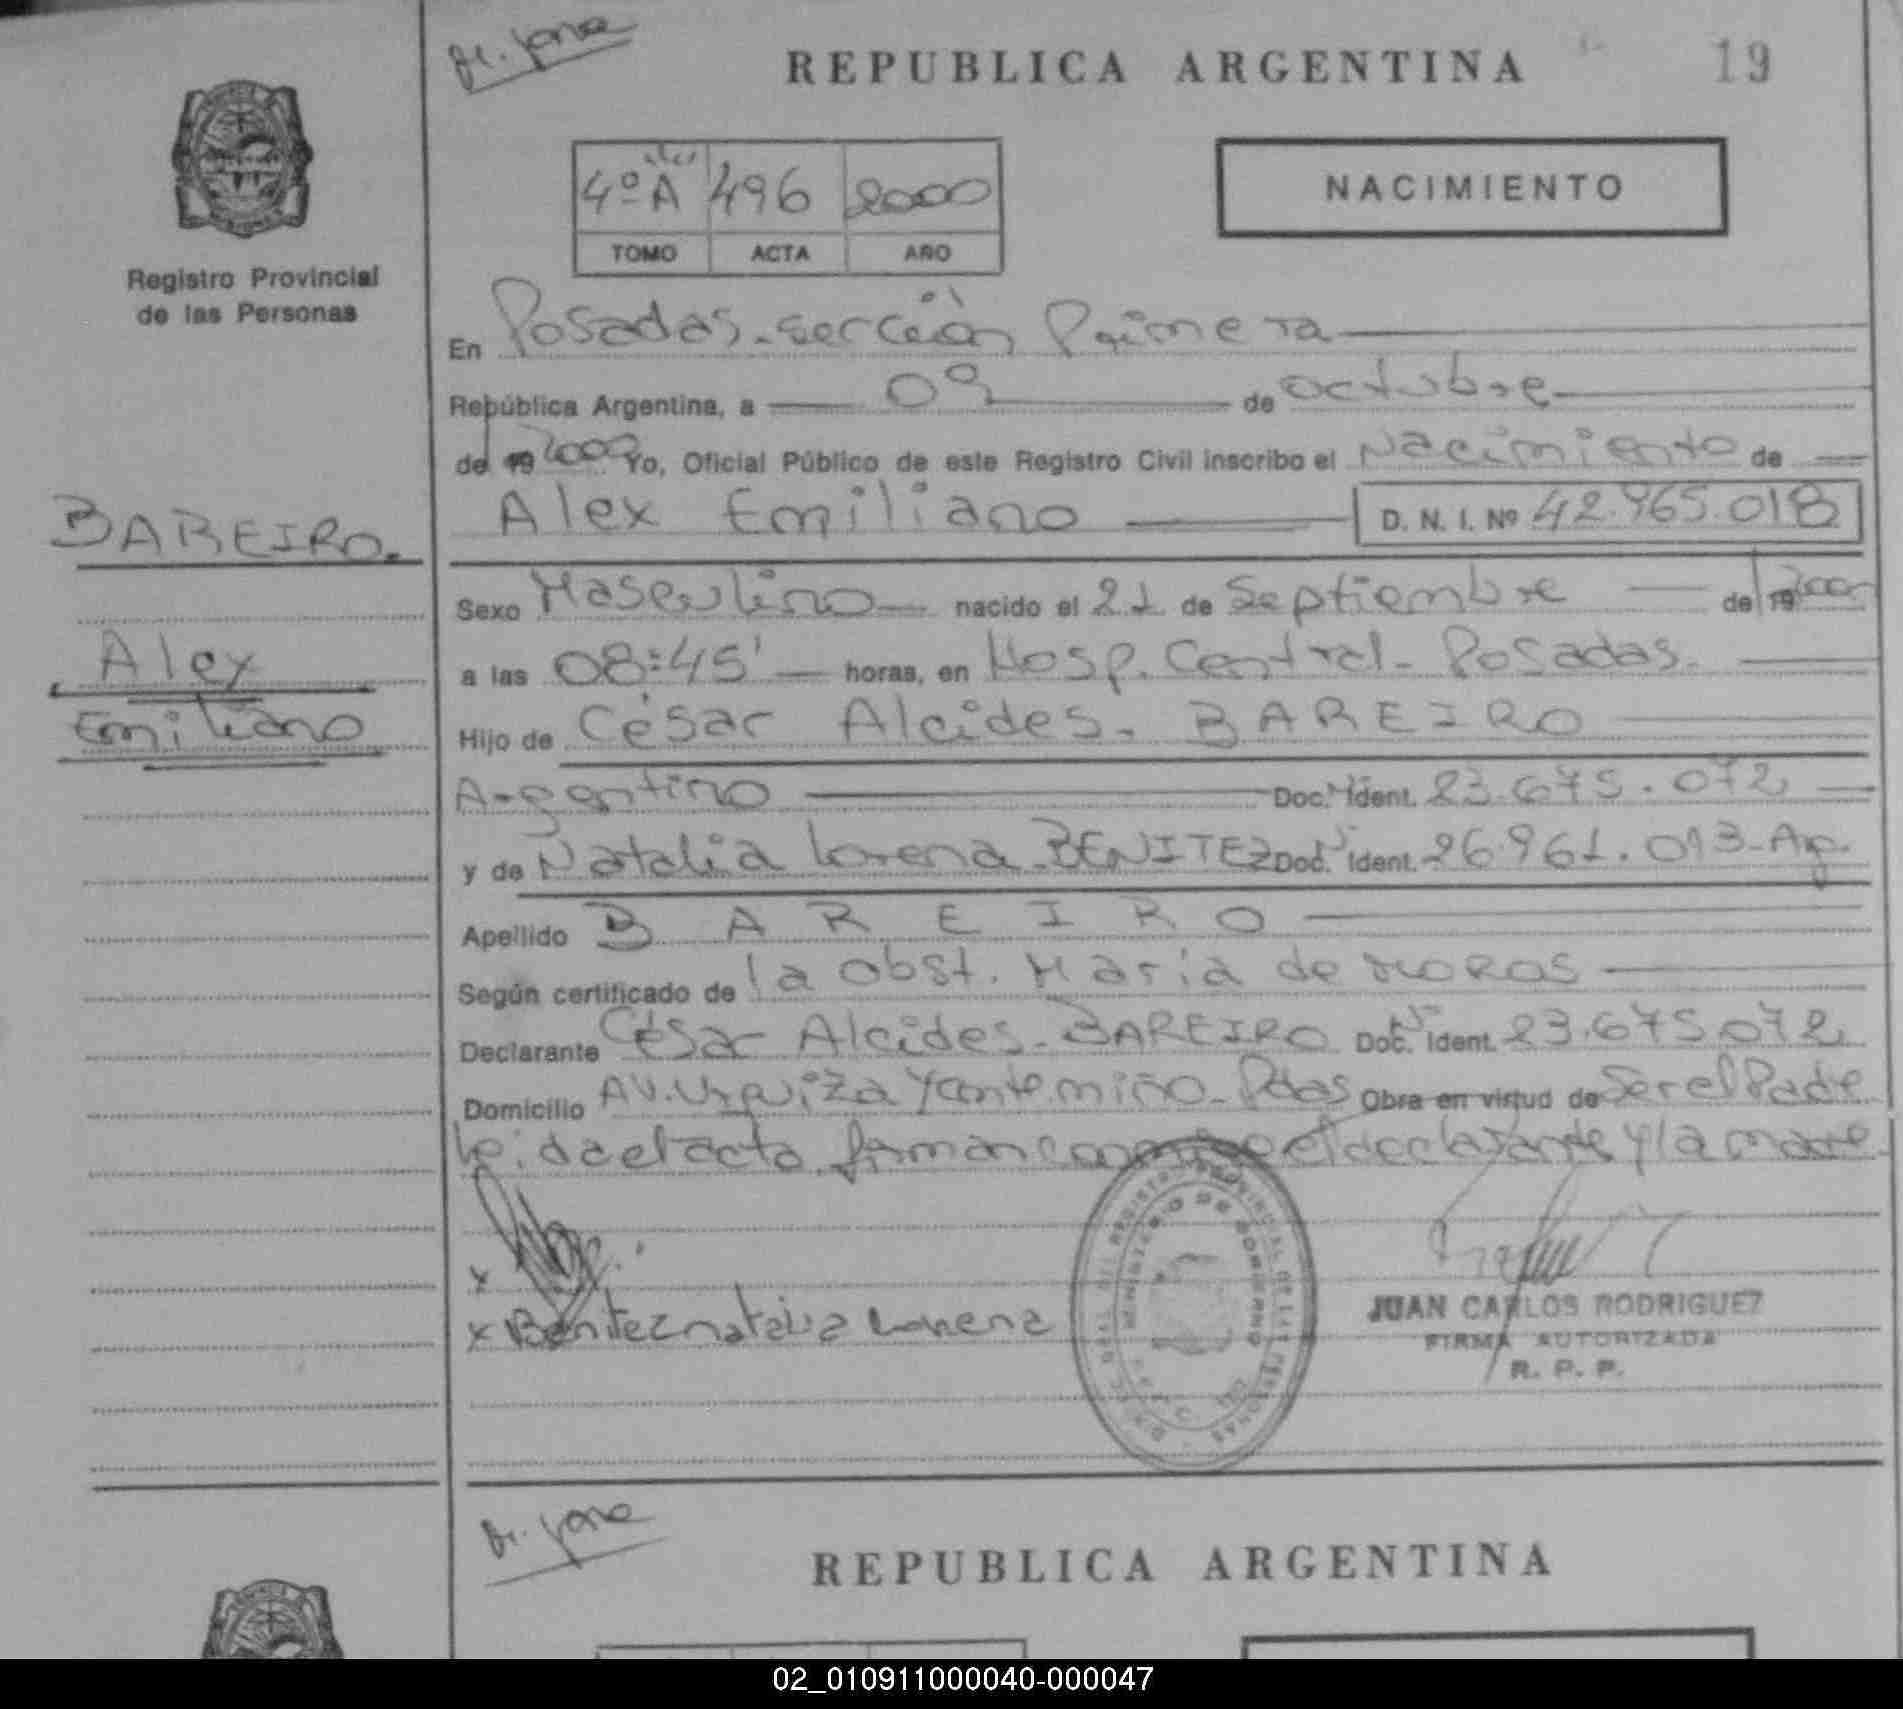 REPUBLICA ARGENTINA
19
4º A 496 2000
TOMO ACTA AÑO
NACIMIENTO
Registro Provincial
de las Personas
En Posadas. sección Primera
República Argentina, a 09 de octubre
del 19 2000 Yo, Oficial Público de este Registro Civil inscribo el Nacimiento de
Alex Emiliano D. N. I. Nº 42.965.018
BAREIRO.
Alex
Emiliano
Sexo Masculino nacido el 21 de Septiembre del 19 2000
a las 08:45' horas, en Hosp. Central - Posadas.
Hijo de César Alcides. BAREIRO
Argentino Doc. Ident. 23.675.072
y de Natalia Lorena BENITEZ Doc. Ident. 26.961.013 - Ag.
Apellido BAREIRO
Según certificado de la obst. Maria de MOROS
Declarante César Alcides - BAREIRO Doc. Ident. 23.675.072
Domicilio AV. Urquiza Pdas Obra en virtud de Ser el Padre
Leida el acta firman conmigo el declarante y la madre
x
x Benitez natalia Lorena
MINISTERIO DE GOBIERNO
JUAN CARLOS RODRIGUEZ
FIRMA AUTORIZADA
R. P. P.
REPUBLICA ARGENTINA
02_010911000040-000047